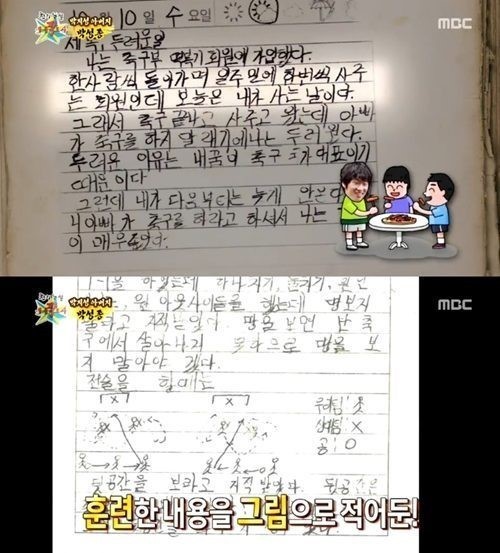 박지성 아버지
박성종
MBC
10월 10일 수요일
제목: 두려움
나는 축구부 떡볶기 회원에 가입했다.
한사람씩 돌아가며 일주일에 한번씩 사주
는 회원인데 오늘은 내가 사는 날이다.
그래서 축구 끝나고 사주고 왔는데 아빠
가 축구를 하지 말래기에 나는 두려웠다.
두려운 이유는 내꿈이 축구 국가대표이기
때문이다
그런데 내가 다음부터는 늦게 안온다
니 아빠가 축구를 하라고 하셔서 나는
이 매우
박지성 아버지
박성종
MBC
을 하였는데
했는데 땅보지
말라고 지적받았다. 땅을 보면 난 축
구에서 살아나지 못하므로 땅을 보
지 말아야 겠다.
전술을 함에는
X X
우리팀: 옷
상대팀: X
공: O
뒷공간을 보라고 지적 받았다. 뒷공간은
훈련한 내용을 그림으로 적어둔!